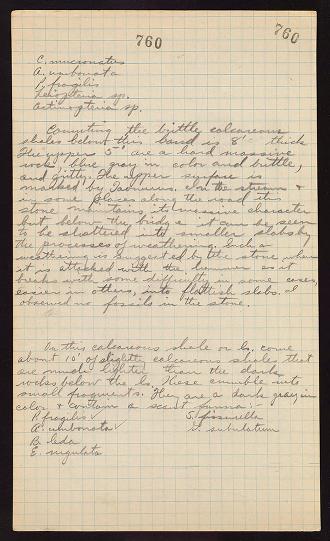 760
760
C. mucronatus
A. umbonata
P. fragilis
Leiopteria sp.
Actinopteria sp.
Counting the brittle calcareous
shales below this band is 8' thick
The upper 5' are a hard massive
rock blue gray in color and brittle,
and gritty. The upper surface is
marked by In the stream &
in some places along the road this
stone maintains its massive character
but below the bridge it can be seen
to be shattered into smaller slabs by
the processes of weathering. Such a
weathering is suggested by the stone when
it is attacked with the hammer as it
breaks with some difficulty in some cases,
easier in others, into flattish slabs. I
observed no fossils in the stone.
In this calcareous shale or ls. come
about 10' of slightly calcareous shales that
are much lighter than the dark
rocks below the ls. These crumble into
small fragments. They are a dark gray in
color & contain a scant fauna:-
P. fragilis ✓
S. fissurella
A. umbonata ✓
subulatum
B. leda